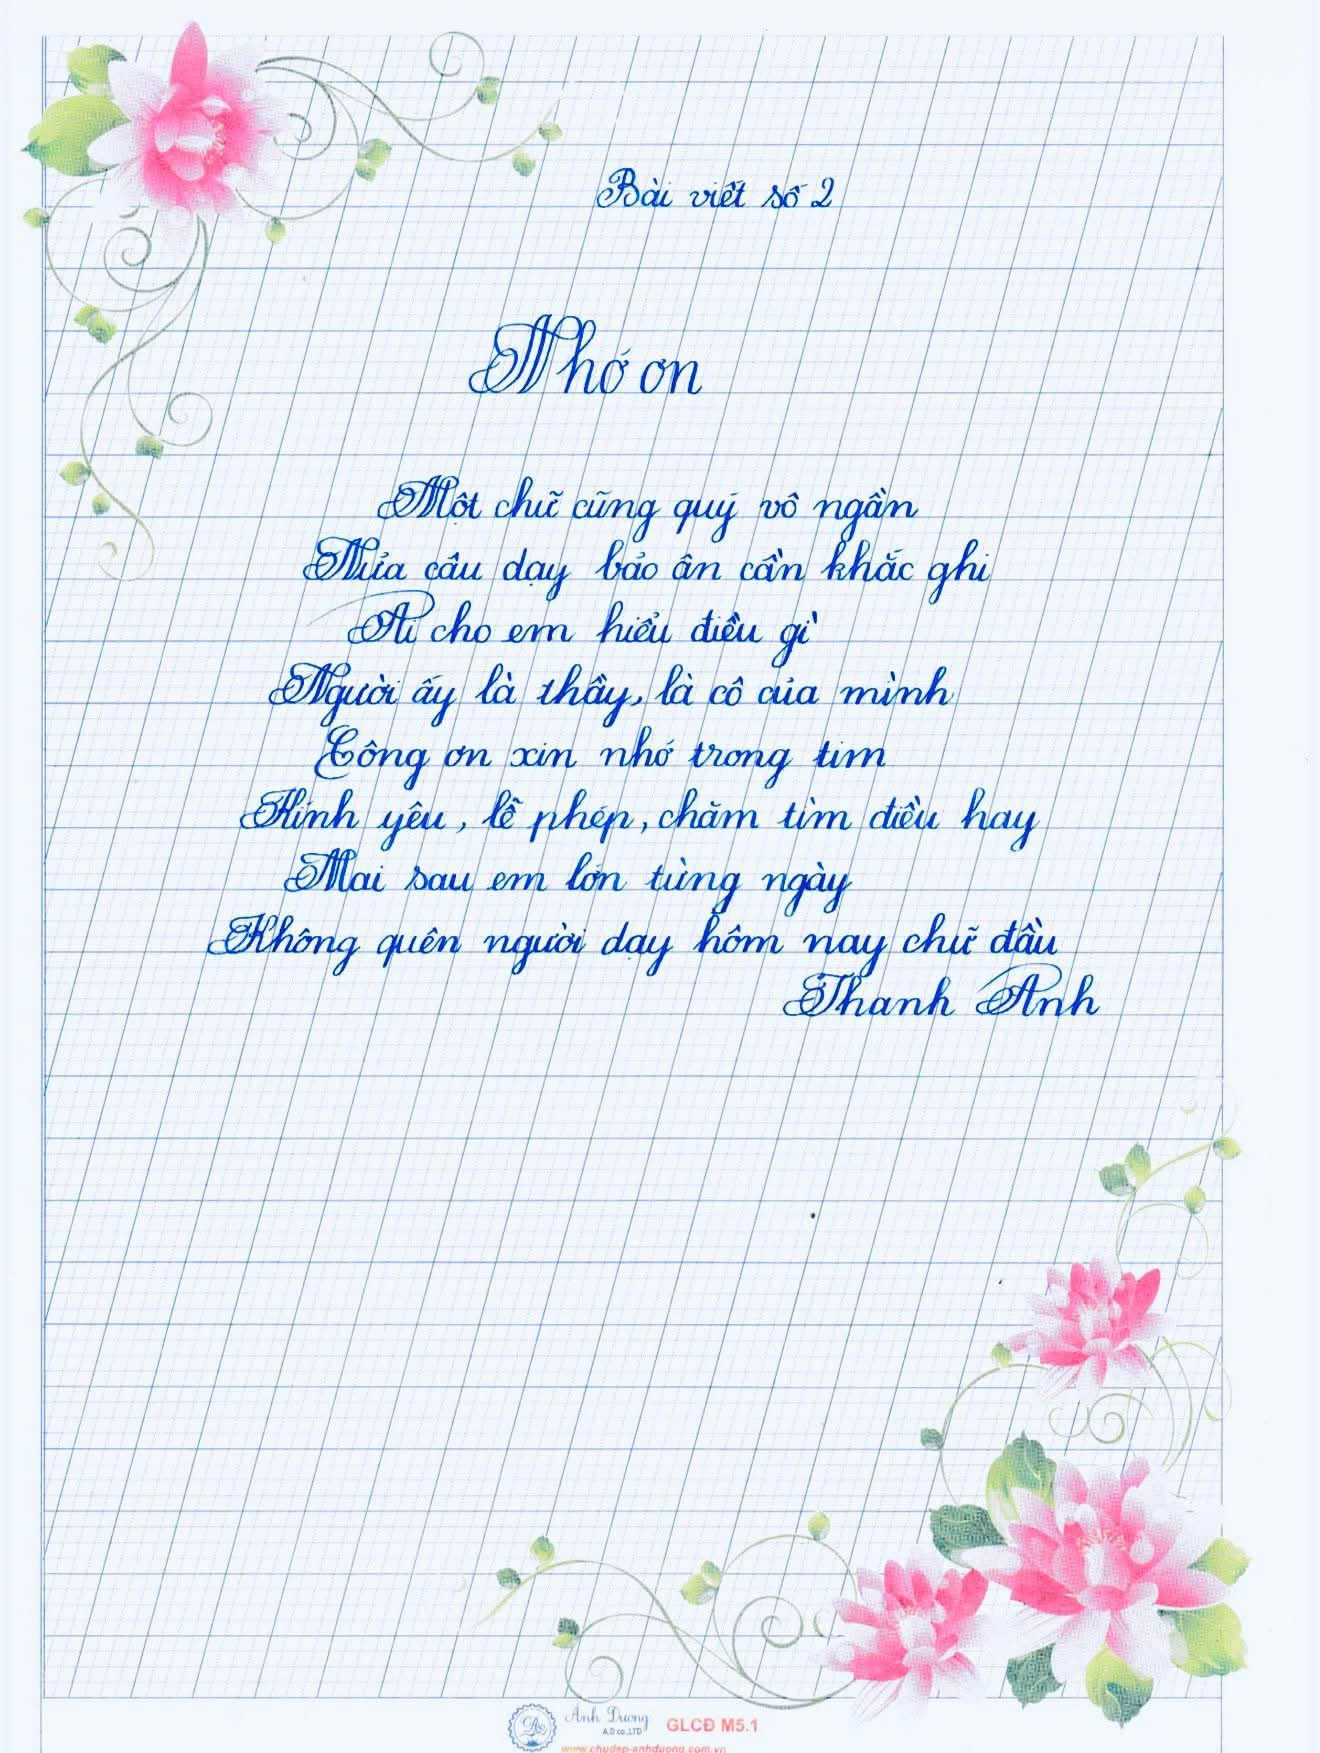 Bài viết số 2
Nhớ ơn
Một chữ cũng quý vô ngần
Nửa câu dạy bảo ân cần khắc ghi
Ai cho em hiểu điều gì
Người ấy là thầy, là cô của mình
Công ơn xin nhớ trong tim
Kính yêu, lễ phép, chăm tìm điều hay
Mai sau em lớn từng ngày
Không quên người dạy hôm nay chữ đầu
Thanh Anh
Ánh Dương
A.D co.,LTD
GLCĐ M5.1
www.chudep-anhduong.com.vn